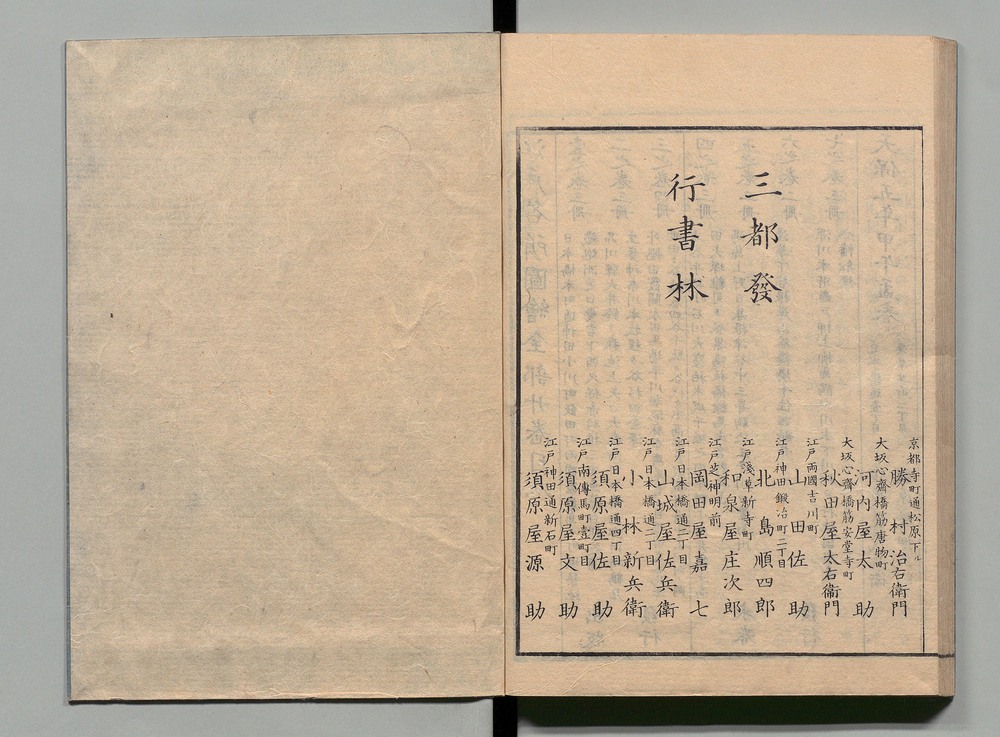 三都發
行書林
京都寺町通松原下ル
勝村治右衛門
大坂心齋橋筋唐物町
河内屋太助
大坂心齋橋筋安堂寺町
秋田屋太右衞門
江戸両國吉川町
山田佐助
江戸神田鍛冶町二丁目
北島順四郎
江戸淺草新寺町
和泉屋庄次郎
江戸芝神明前
岡田屋嘉七
江戸日本橋通二丁目
山城屋佐兵衛
江戸日本橋通二丁目
小林新兵衛
江戸日本橋通四丁目
須原屋佐助
江戸南傳馬町壹町目
須原屋文助
江戸神田通新石町
須原屋源助